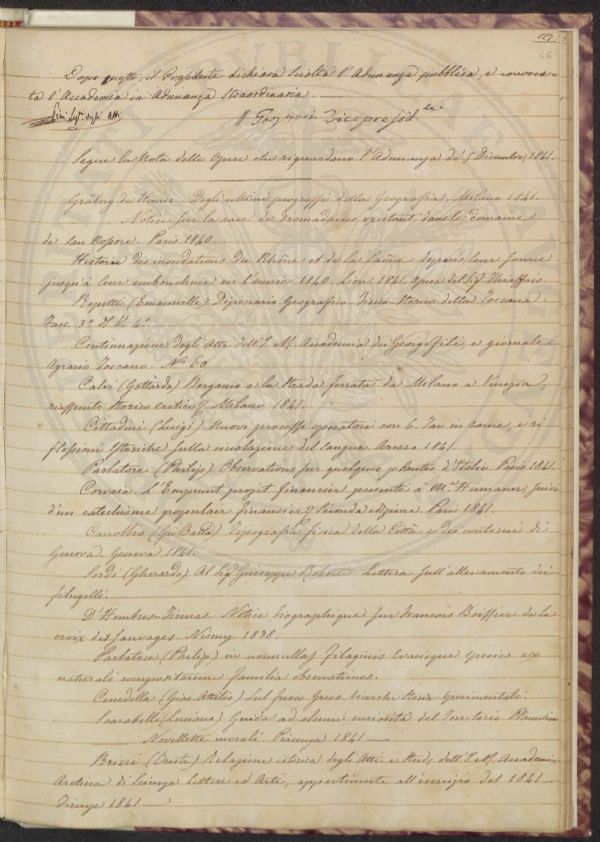 Dopo questo, il Presidente dichiara sciolta l'Adunanza pubblica, e convoca-
ta l'Accademia in Adunanza Straordinaria.
Vicepresid.te
Segue la Nota delle Opere che riguardano l'Adunanza de' 5 Dicembre 1841.
Gråberg de Hemsö. Degli ultimi progressi della Geografia. Milano 1841.
Notice sur la race de dromadaires existant dans le domaine
de San Rossore. Paris 1840.
Histoire des inondations du Rhône et de la Saône depuis leur source
jusqu'à leur embouchure en l'année 1840. Lion 1841. Opera del Sig.
Repetti (Emanuelle) Dizionario Geografico-Fisico-Storico della Toscana
Fasc. 3.°
Continuazione degli Atti dell'I. R. Accademia dei Georgofili, e giornale
Agrario Toscano. N.° 60
Calvi (Gottardo) Bergamo e la Strada ferrata da Milano a Venezia,
riassunto storico critico. Milano 1841.
Cittadini (Luigi) Nuovi processi operatorii con 6 Tav. in rame, e ri-
flessioni storiche sulla del sangue. Arezzo 1841.
Parlatore (Philip) Observations sur quelques plantes d'Italie. Paris 1841.
Corvaia. L'Emprunt projet financier presenté à M.r Humann, suivi
d'un catechisme populaire financier, seconda edizione. Paris 1841.
Canobbio (Gio. Batta) Topografia fisica della Città e dei contorni di
Genova. Genova 1841.
Sordi (Gherardo) Al Sig. Guiseppe Lettera sull'allevamento dei
filugelli.
D'Hombres-Firmas. Notice biographique sur François Boissier de la
croix de Sauvages. Nismes 1838.
Parlatore (Philip) in nonnullas filaginis Evacisque species ex
naturali compositarum familia observationes.
Cenedella (Giac. Attilio) Sul fuoco Greco. Ricerche Storico Sperimentali.
Scarabelli (Luciano) Guida ad alcune curiosità del Territorio
Novellette morali. Piacenza 1841
Brizzi (Oreste) Relazione istorica degli Atti e Studj dell'I. e R. Accademia
Aretina di Scienze Lettere ed Arti, appartenente all'esercizio del 1841.
Firenze 1841